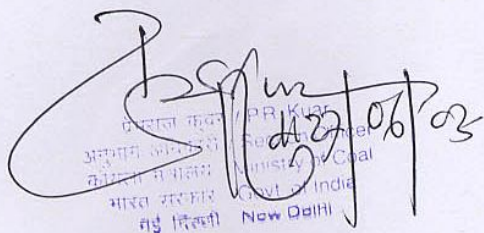 dt 27/06/03
प्रेमराज कुवर / P.R. Kuar
अनुभाग अधिकारी / Section Officer
कोयला मंत्रालय / Ministry of Coal
भारत सरकार / Govt. of India
नई दिल्ली New Delhi